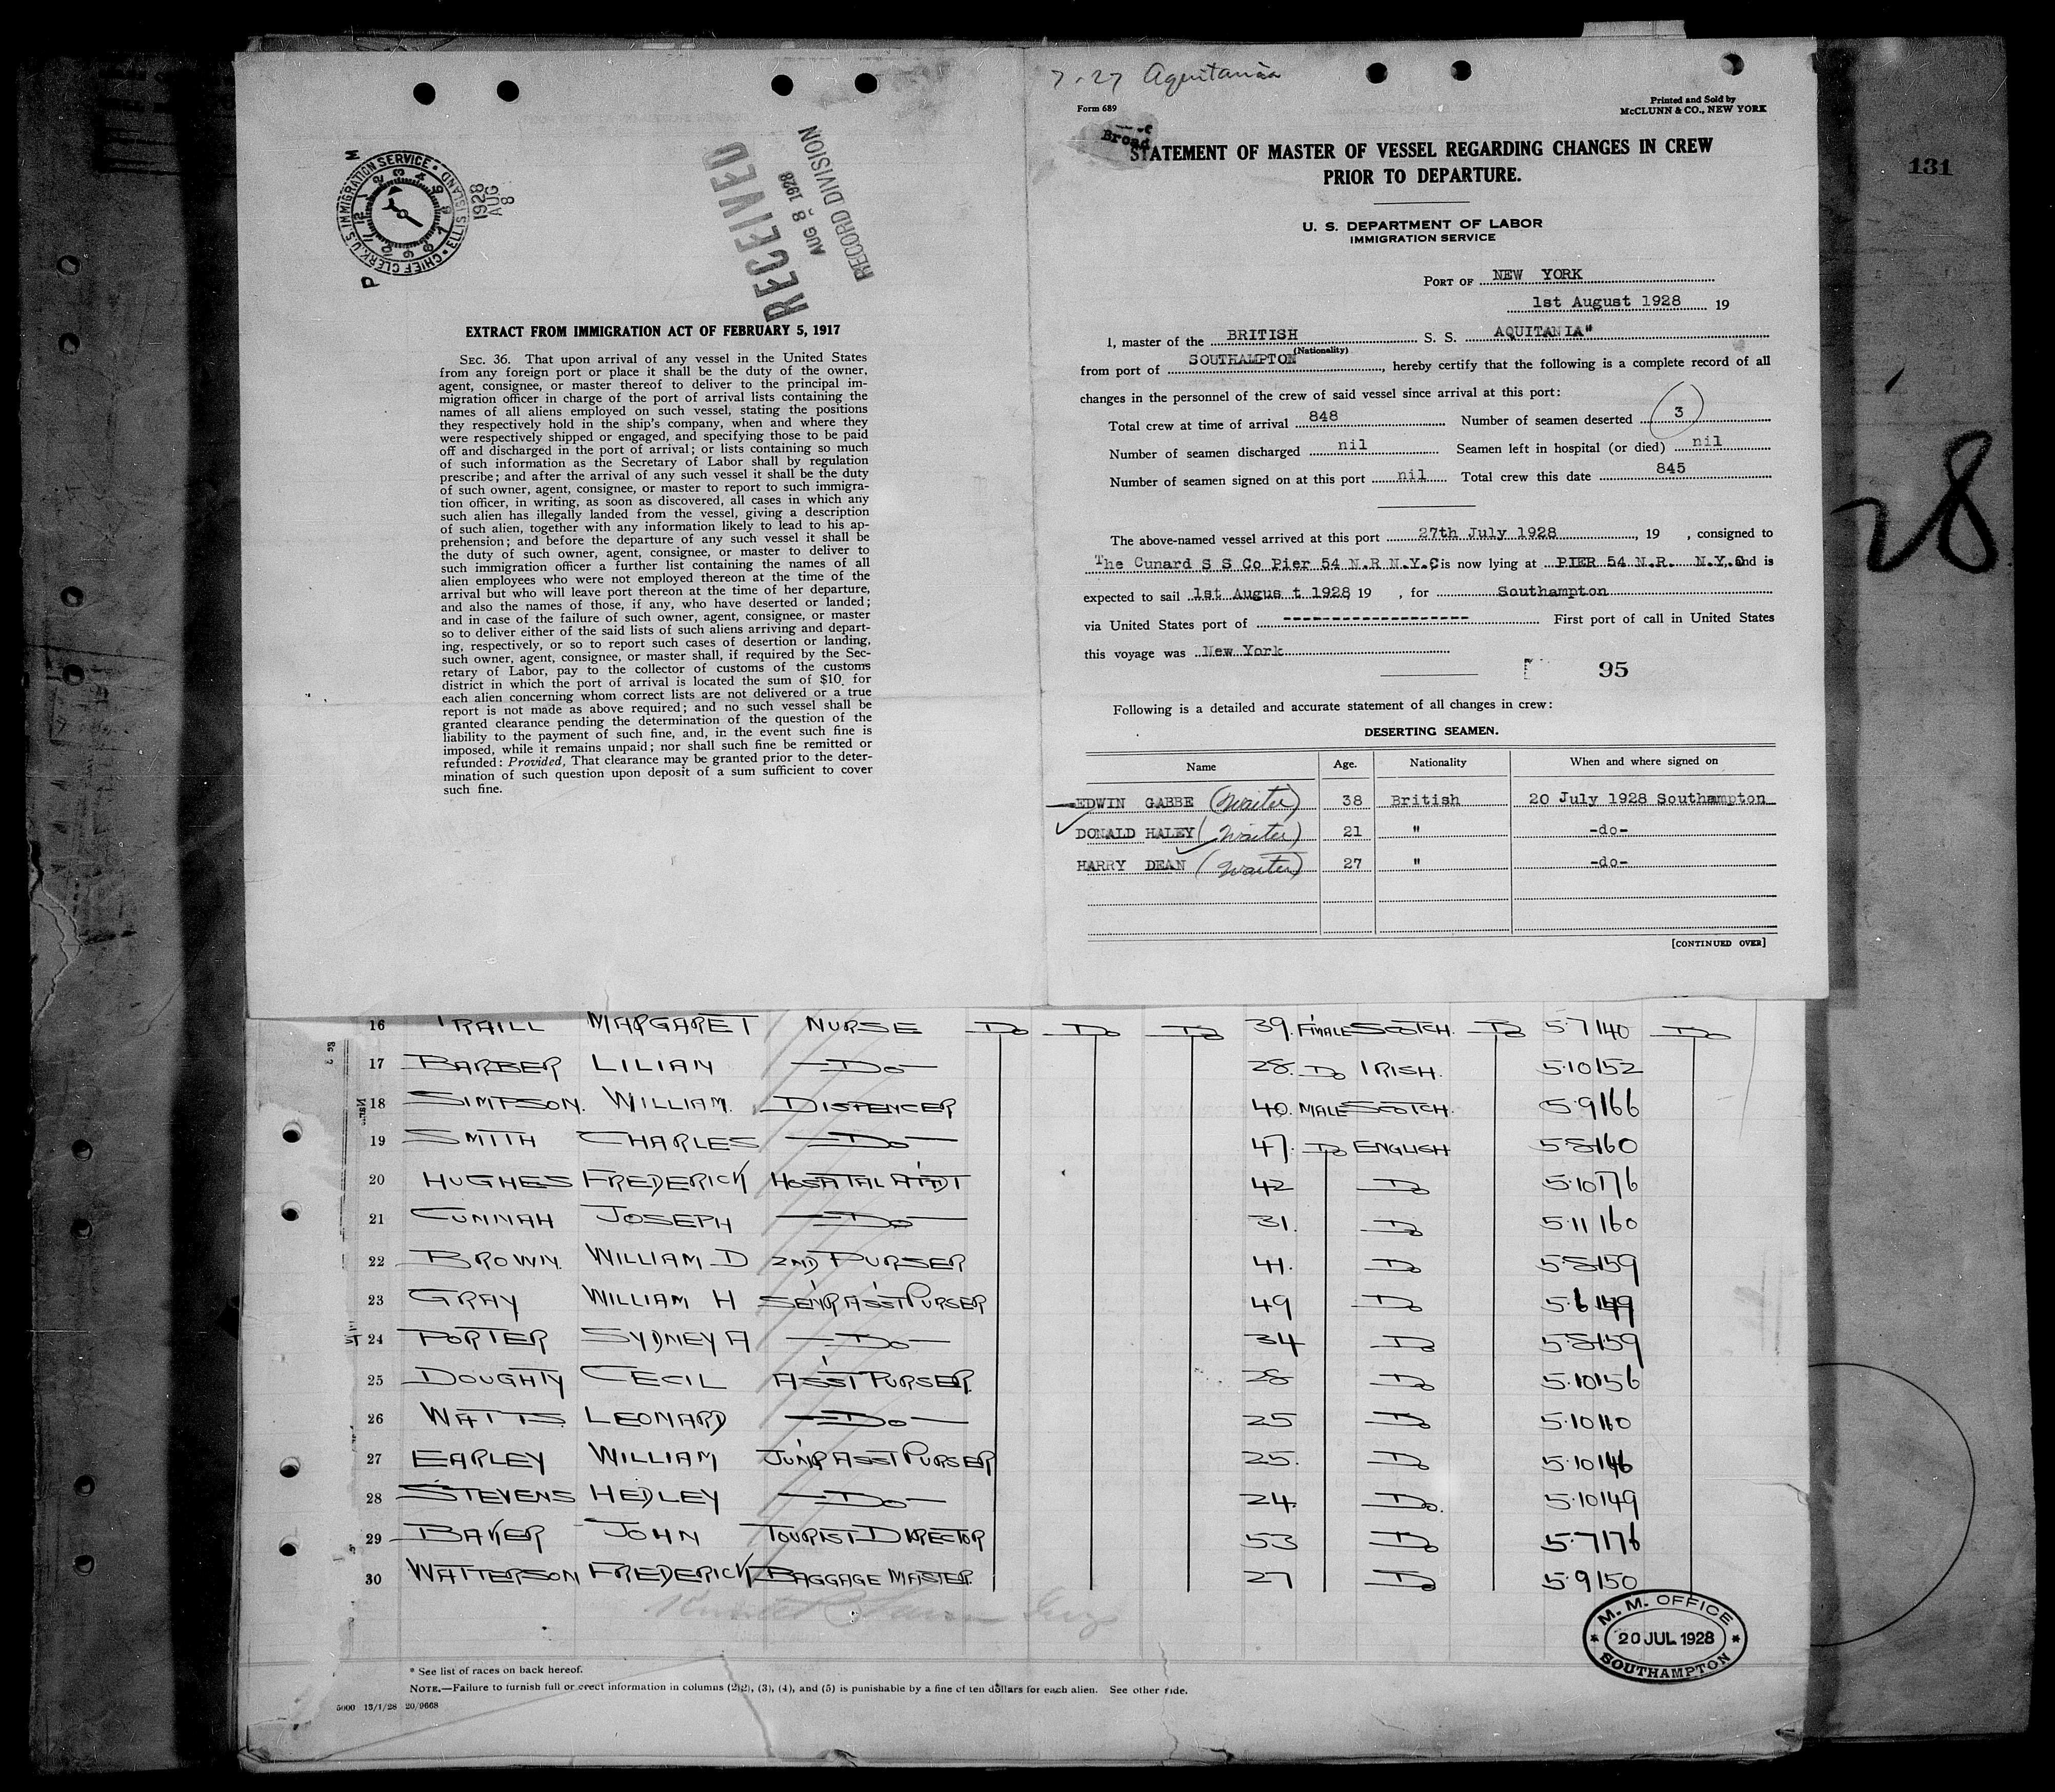 U.S. IMMIGRATION SERVICE
CHIEF CLERK ELLIS ISLAND
P M
AUG 8
1928
RECEIVED
AUG 8 1928
RECORD DIVISION
EXTRACT FROM IMMIGRATION ACT OF FEBRUARY 5, 1917
SEC. 36. That upon arrival of any vessel in the United States
from any foreign port or place it shall be the duty of the owner,
agent, consignee, or master thereof to deliver to the principal im-
migration officer in charge of the port of arrival lists containing the
names of all aliens employed on such vessel, stating the positions
they respectively hold in the ship's company, when and where they
were respectively shipped or engaged, and specifying those to be paid
off and discharged in the port of arrival; or lists containing so much
of such information as the Secretary of Labor shall by regulation
prescribe; and after the arrival of any such vessel it shall be the duty
of such owner, agent, consignee, or master to report to such immigra-
tion officer, in writing, as soon as discovered, all cases in which any
such alien has illegally landed from the vessel, giving a description
of such alien, together with any information likely to lead to his ap-
prehension; and before the departure of any such vessel it shall be
the duty of such owner, agent, consignee, or master to deliver to
such immigration officer a further list containing the names of all
alien employees who were not employed thereon at the time of the
arrival but who will leave port thereon at the time of her departure,
and also the names of those, if any, who have deserted or landed;
and in case of the failure of such owner, agent, consignee, or master
so to deliver either of the said lists of such aliens arriving and depart-
ing, respectively, or so to report such cases of desertion or landing,
such owner, agent, consignee, or master shall, if required by the Sec-
retary of Labor, pay to the collector of customs of the customs
district in which the port of arrival is located the sum of $10 for
each alien concerning whom correct lists are not delivered or a true
report is not made as above required; and no such vessel shall be
granted clearance pending the determination of the question of the
liability to the payment of such fine, and, in the event such fine is
imposed, while it remains unpaid; nor shall such fine be remitted or
refunded: Provided, That clearance may be granted prior to the deter-
mination of such question upon deposit of a sum sufficient to cover
such fine.
7-27 Aquitania
Form 689
Printed and Sold by
McCLUNN & CO., NEW YORK
Broad
STATEMENT OF MASTER OF VESSEL REGARDING CHANGES IN CREW
PRIOR TO DEPARTURE.
U. S. DEPARTMENT OF LABOR
IMMIGRATION SERVICE
PORT OF NEW YORK
1st August 1928 19
I, master of the BRITISH S. S. AQUITANIA"
(Nationality)
from port of SOUTHAMPTON, hereby certify that the following is a complete record of all
changes in the personnel of the crew of said vessel since arrival at this port:
Total crew at time of arrival 848 Number of seamen deserted 3
Number of seamen discharged nil Seamen left in hospital (or died) nil
Number of seamen signed on at this port nil Total crew this date 845
The above-named vessel arrived at this port 27th July 1928, 19 , consigned to
The Cunard S S Co Pier 54 N.R N.Y.C, is now lying at PIER 54 N.R. N.Y.C, and is
expected to sail 1st Augus t 1928 19 , for Southampton
via United States port of ------------------- First port of call in United States
this voyage was New York
95
Following is a detailed and accurate statement of all changes in crew:
DESERTING SEAMEN.
Name Age. Nationality When and where signed on
EDWIN GABBE (Waiter) 38 British 20 July 1928 Southampton
DONALD HALEY (Waiter) 21 " -do-
HARRY DEAN (Waiter) 27 " -do-
[CONTINUED OVER]
131
28
16 TRAILL MARGARET NURSE Do Do Do 39. F'MALE SCOTCH. Do 5·7 140 Do
17 BARBER LILIAN Do 28. Do IRISH. 5·10 152
18 SIMPSON. WILLIAM. DISPENCER 40. MALE SCOTCH. 5·9 166
19 SMITH CHARLES Do 47. Do ENGLISH 5·8 160
20 HUGHES FREDERICK HOSPITAL ATT'DT 42 Do 5·10 176
21 CUNNAH JOSEPH Do 31. Do 5·11 160
22 BROWN. WILLIAM D 2ND PURSER 41. Do 5·8 159
23 GRAY WILLIAM H SEN'R ASS'T PURSER 49 Do 5·6 149
24 PORTER SYDNEY A Do 34 Do 5·8 159
25 DOUGHTY CECIL ASS'T PURSER. 28 Do 5·10 156
26 WATTS LEONARD Do 25 Do 5·10 160
27 EARLEY WILLIAM JUN'R ASST PURSER 25. Do 5·10 146
28 STEVENS HEDLEY Do 24. Do. 5·10 149
29 BAKER JOHN TOURIST DIRECTOR 53 Do 5·7 176
30 WATTERSON FREDERICK BAGGAGE MASTER. 27 Do 5·9 150
M. M. OFFICE
20 JUL 1928
SOUTHAMPTON
* See list of races on back hereof.
NOTE.—Failure to furnish full or correct information in columns (2), (3), (4), and (5) is punishable by a fine of ten dollars for each alien. See other side.
5000 13/1/28 20/9668